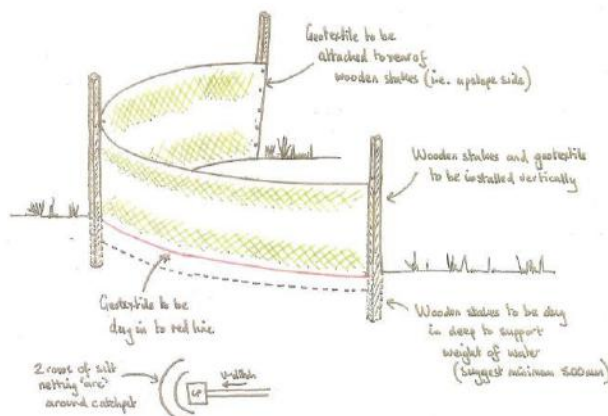 Geotextile to be
attached to rear of
wooden stakes (i.e. upslope side)
Wooden stakes and geotextile
to be installed vertically
Geotextile to be
dug in to red line
Wooden stakes to be dug
in deep to support
weight of water
(suggest minimum 500mm)
2 rows of silt
netting "arc"
around catchpit
CP
V-ditch